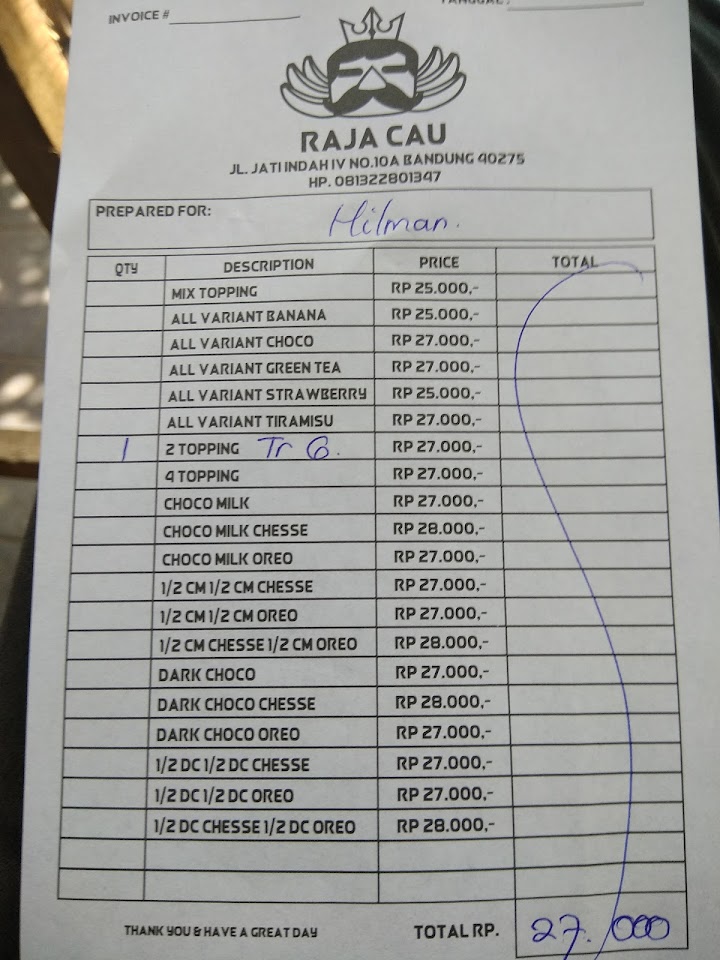 INVOICE #
TANGGAL :
RAJA CAU
JL. JATI INDAH IV NO.10A BANDUNG 40275
HP. 081322801347
PREPARED FOR: Hilman.
QTY DESCRIPTION PRICE TOTAL
MIX TOPPING RP 25.000,-
ALL VARIANT BANANA RP 25.000,-
ALL VARIANT CHOCO RP 27.000,-
ALL VARIANT GREEN TEA RP 27.000,-
ALL VARIANT STRAWBERRY RP 25.000,-
ALL VARIANT TIRAMISU RP 27.000,-
1 2 TOPPING Tr G. RP 27.000,-
4 TOPPING RP 27.000,-
CHOCO MILK RP 27.000,-
CHOCO MILK CHESSE RP 28.000,-
CHOCO MILK OREO RP 27.000,-
1/2 CM 1/2 CM CHESSE RP 27.000,-
1/2 CM 1/2 CM OREO RP 27.000,-
1/2 CM CHESSE 1/2 CM OREO RP 28.000,-
DARK CHOCO RP 27.000,-
DARK CHOCO CHESSE RP 28.000,-
DARK CHOCO OREO RP 27.000,-
1/2 DC 1/2 DC CHESSE RP 27.000,-
1/2 DC 1/2 DC OREO RP 27.000,-
1/2 DC CHESSE 1/2 DC OREO RP 28.000,-
THANK YOU & HAVE A GREAT DAY TOTAL RP. 27.000